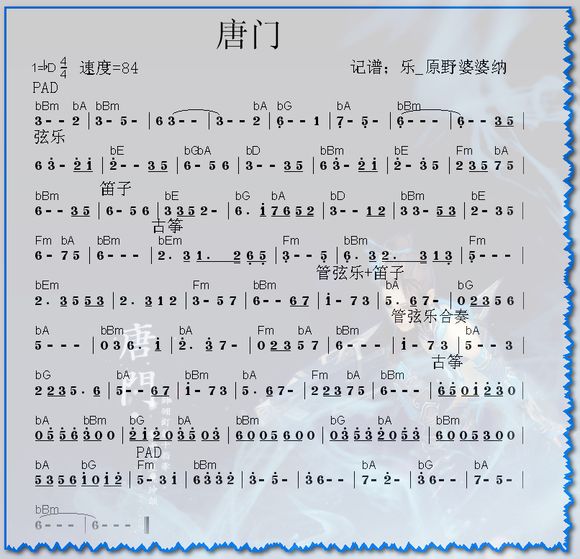 唐门
1=bD 4/4 速度=84 记谱：乐_原野婆婆纳
PAD
bBm bA bBm bA bG bA bBm
3--2 | 3-5- | 63-- | 3--2 | 6--1 | 7-5- | 6--- | 6--35
弦乐
bE bGbA bD bBm bE Fm bA
63-21 | 2--35 | 6-56 | 3--35 | 63-21 | 2-35 | 23575
笛子
bBm bE bG bA bD bBm bE
6--35 | 6-56 | 3352- | 6.17652 | 3--12 | 33-53 | 2-35
古筝
Fm bA bBm bEm Fm bBm Fm
6-75 | 6--- | 2.31.265 | 3--5 | 6.32.313 | 5---
管弦乐+笛子
bEm bBm Fm bBm bA bG
2.3553 | 2.312 | 3-57 | 6--67 | 1-73 | 5.67- | 02356
管弦乐合奏
bA bBm bA Fm bBm bA
5--- | 036.1 | 2.37- | 02357 | 6--- | 1-73 | 5--3
古筝
bG bA bBm bA Fm bBm
2235.6 | 5--67 | 1-73 | 5.67- | 22375 | 6--- | 6501230
bA bBm bG bA bBm bG bA bBm
05556300 | 21203503 | 60056000 | 03532053 | 6005630
PAD
bA bG Fm bBm bA bG bA
53561012 | 5-31 | 6332 | 3-5- | 36-- | 7-2- | 36-- | 7-5-
bBm
6--- | 6---
唐門